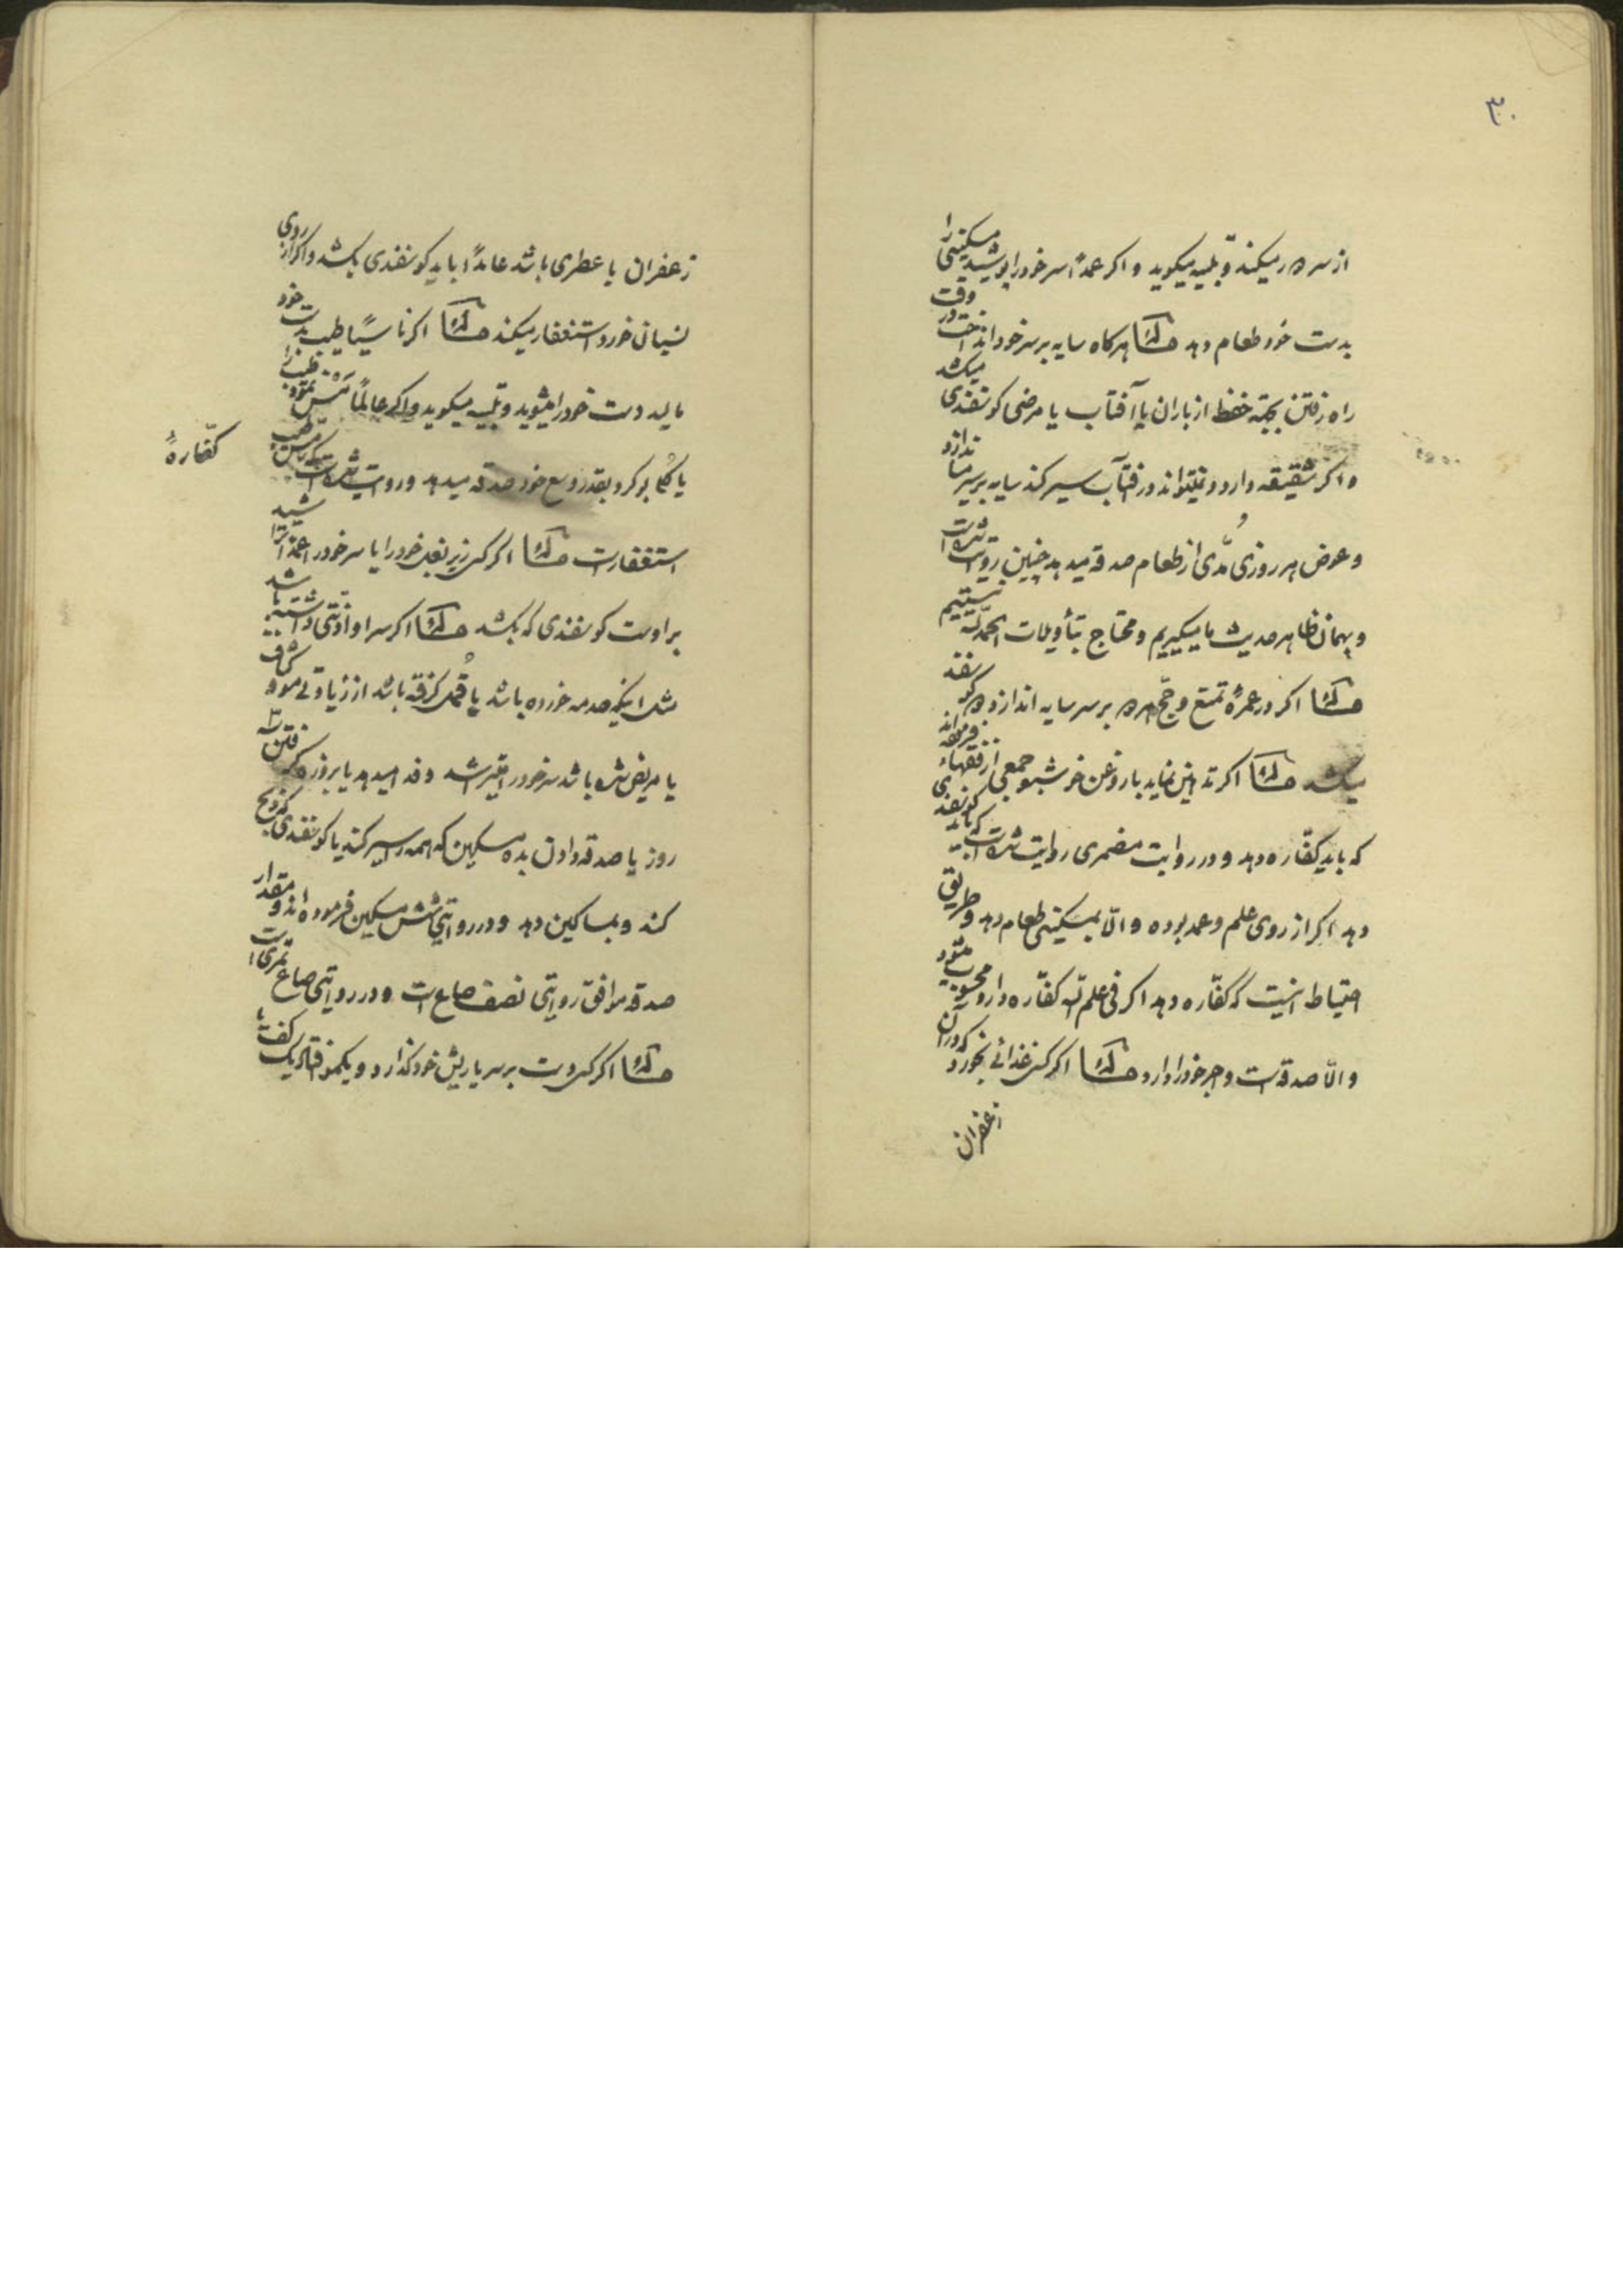 ۳۰
از سر در میکند و تلبیه میگوید و اگر عمداً سر خود را پوشید مسکینی را
بدست خود طعام دهد مسئله هرگاه سایه بر سر خود انداخت در وقت
راه رفتن بجهة حفظ از باران یا آفتاب یا مرضی گوسفندی میکشد
و اگر شقیقه دارد و نمیتواند در آفتاب سیر کند سایه بر سر میاندازد
و عوض هر روزی مدّی از طعام صدقه میدهد چنین روایت شده است
و بهمان ظاهر حدیث ما میگیریم و محتاج بتأویلات الحمد لله نیستیم
مسئله اگر در عمرهٔ تمتع و حج هر دو بر سر سایه اندازد دو گوسفند
میکشد مسئله اگر تدهین نماید بار وغن خوشبو جمعی از فقهاء فرموده‌اند
که باید کفّاره دهد و در روایت مضمری روایت شده است که باید گوسفندی
دهد اگر از روی علم و عمد بوده و الّا بمسکینی طعام دهد و طریق
احتیاط اینست که کفّاره دهد اگر فی علم الله کفّاره دارد محسوب میشود
و الّا صدقه است و اجر خود را دارد مسئله اگر کسی غذائی بخورد که در آن
زعفران
زعفران یا عطری باشد عامداً باید گوسفندی بکشد و اگر از روی
نسیان خورد استغفار میکند مسئله اگر ناسیاً طیب بدست خود
مالید دست خود را میشوید و تلبیه میگوید و اگر عالماً مسّ نمود طیب را
یا گلی بو کرد بقدر وسع خود صدقه میدهد و روایت شده است که در مسّ طیب کفّارهٔ
استغفار است مسئله اگر کسی زیر بغل خود را یا سر خود را عمداً تراشید
بر اوست گوسفندی که بکشد مسئله اگر سر او اذیّتی داشته باشد
مثل اینکه صدمه خورده باشد یا قمل گرفته باشد از زیادتی موو کثافت
یا مریض شده باشد سر خود را میتراشد و فدا میدهد یا بروزه گرفتن سه
روز یا صدقه دادن بده مسکین که همه را سیر کند یا گوسفندی که ذبح
کند و بمساکین دهد و در روایتی شش مسکین فرموده‌اند و مقدار
صدقه موافق روایتی نصف صاع است و در روایتی صاع تمری است
مسئله اگر کسی دست بر سر یا ریش خود گذارد و یکمو افتاد یک کف یا